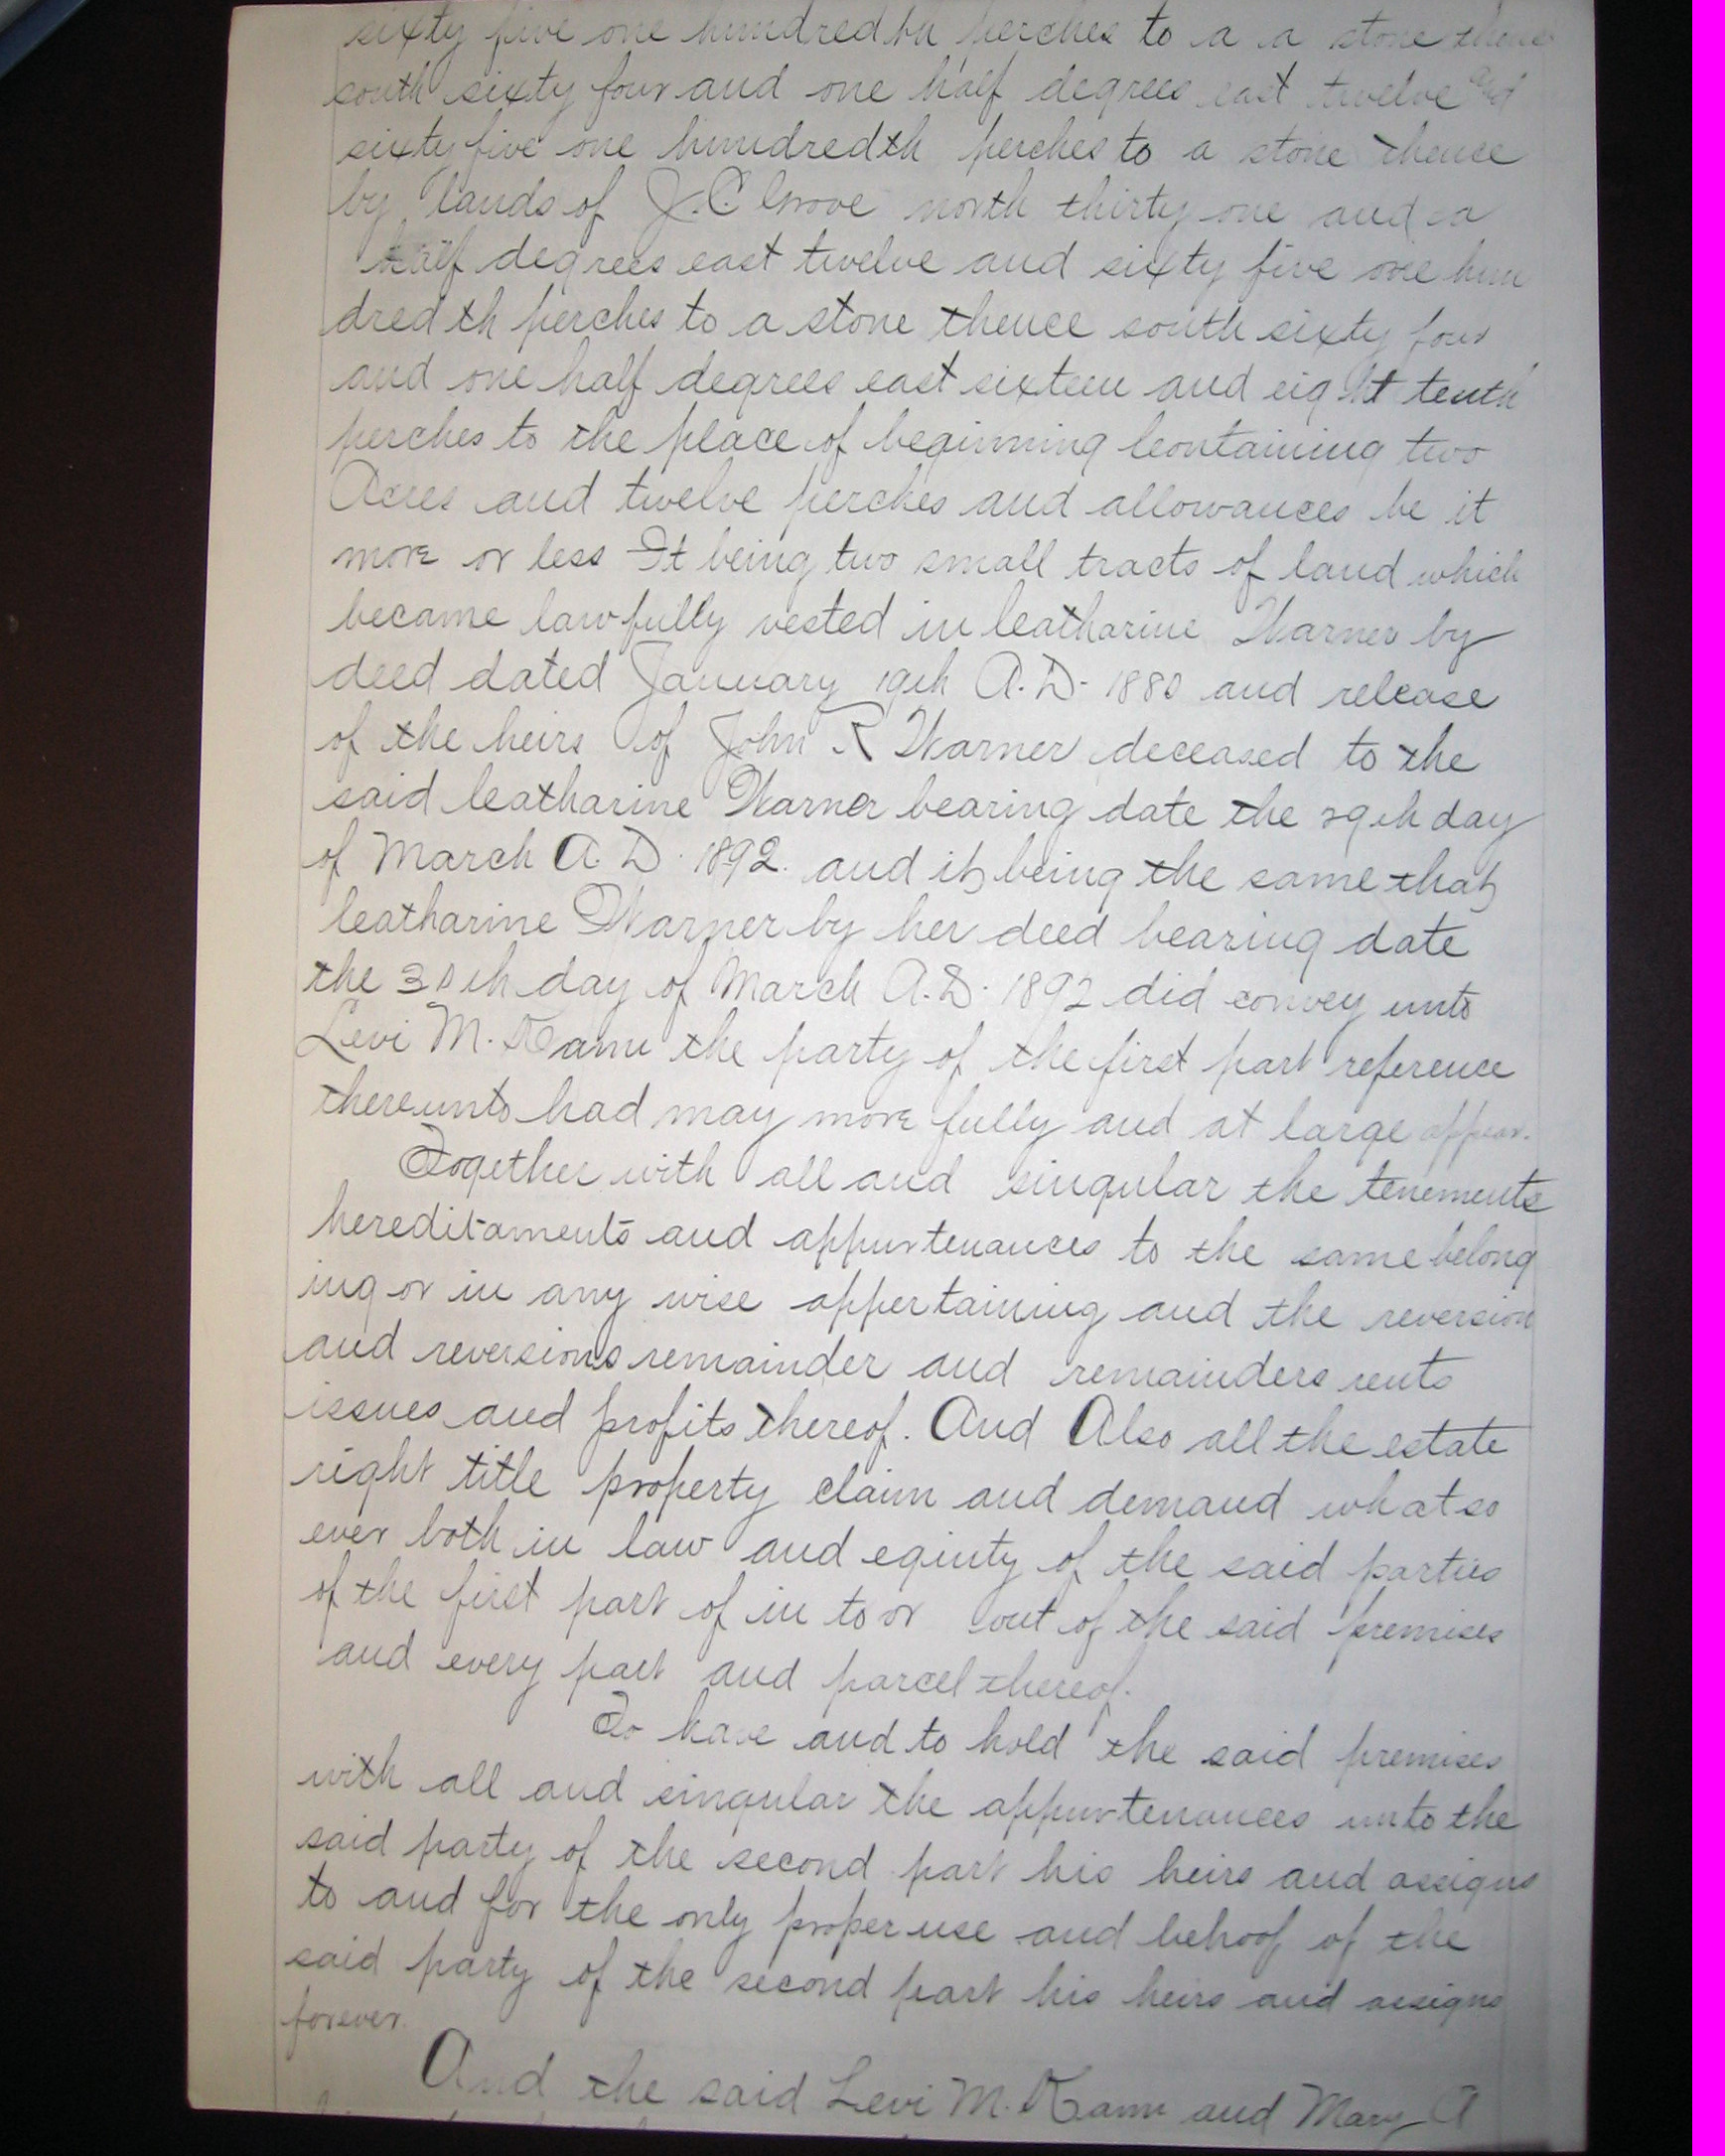 sixty five one hundredth perches to a a stone thence
south sixty four and one half degrees east twelve and
sixty five one hundredth perches to a stone thence
by lands of J. C. Grove north thirty one and a
half degrees east twelve and sixty five one hun
dredth perches to a stone thence south sixty four
and one half degrees east sixteen and eight tenth
perches to the place of beginning Containing two
Acres and twelve perches and allowances be it
more or less It being two small tracts of land which
became lawfully vested in Catharine Warner by
deed dated January 19th A.D. 1880 and release
of the heirs of John R Warner deceased to the
said Catharine Warner bearing date the 29th day
of March A.D. 1892. and it being the same that
Catharine Warner by her deed bearing date
the 30th day of March A.D. 1892 did convey unto
Levi M. Kann the party of the first part reference
thereunto had may more fully and at large appear.
Together with all and singular the tenements
hereditaments and appurtenances to the same belong
ing or in any wise appertaining and the reversion
and reversions remainder and remainders rents
issues and profits thereof. And Also all the estate
right title property claim and demand whatso
ever both in law and equity of the said parties
of the first part of in to or out of the said premises
and every part and parcel thereof.
To have and to hold the said premises
with all and singular the appurtenances unto the
said party of the second part his heirs and assigns
to and for the only proper use and behoof of the
said party of the second part his heirs and assigns
forever.
And the said Levi M. Kann and Mary A